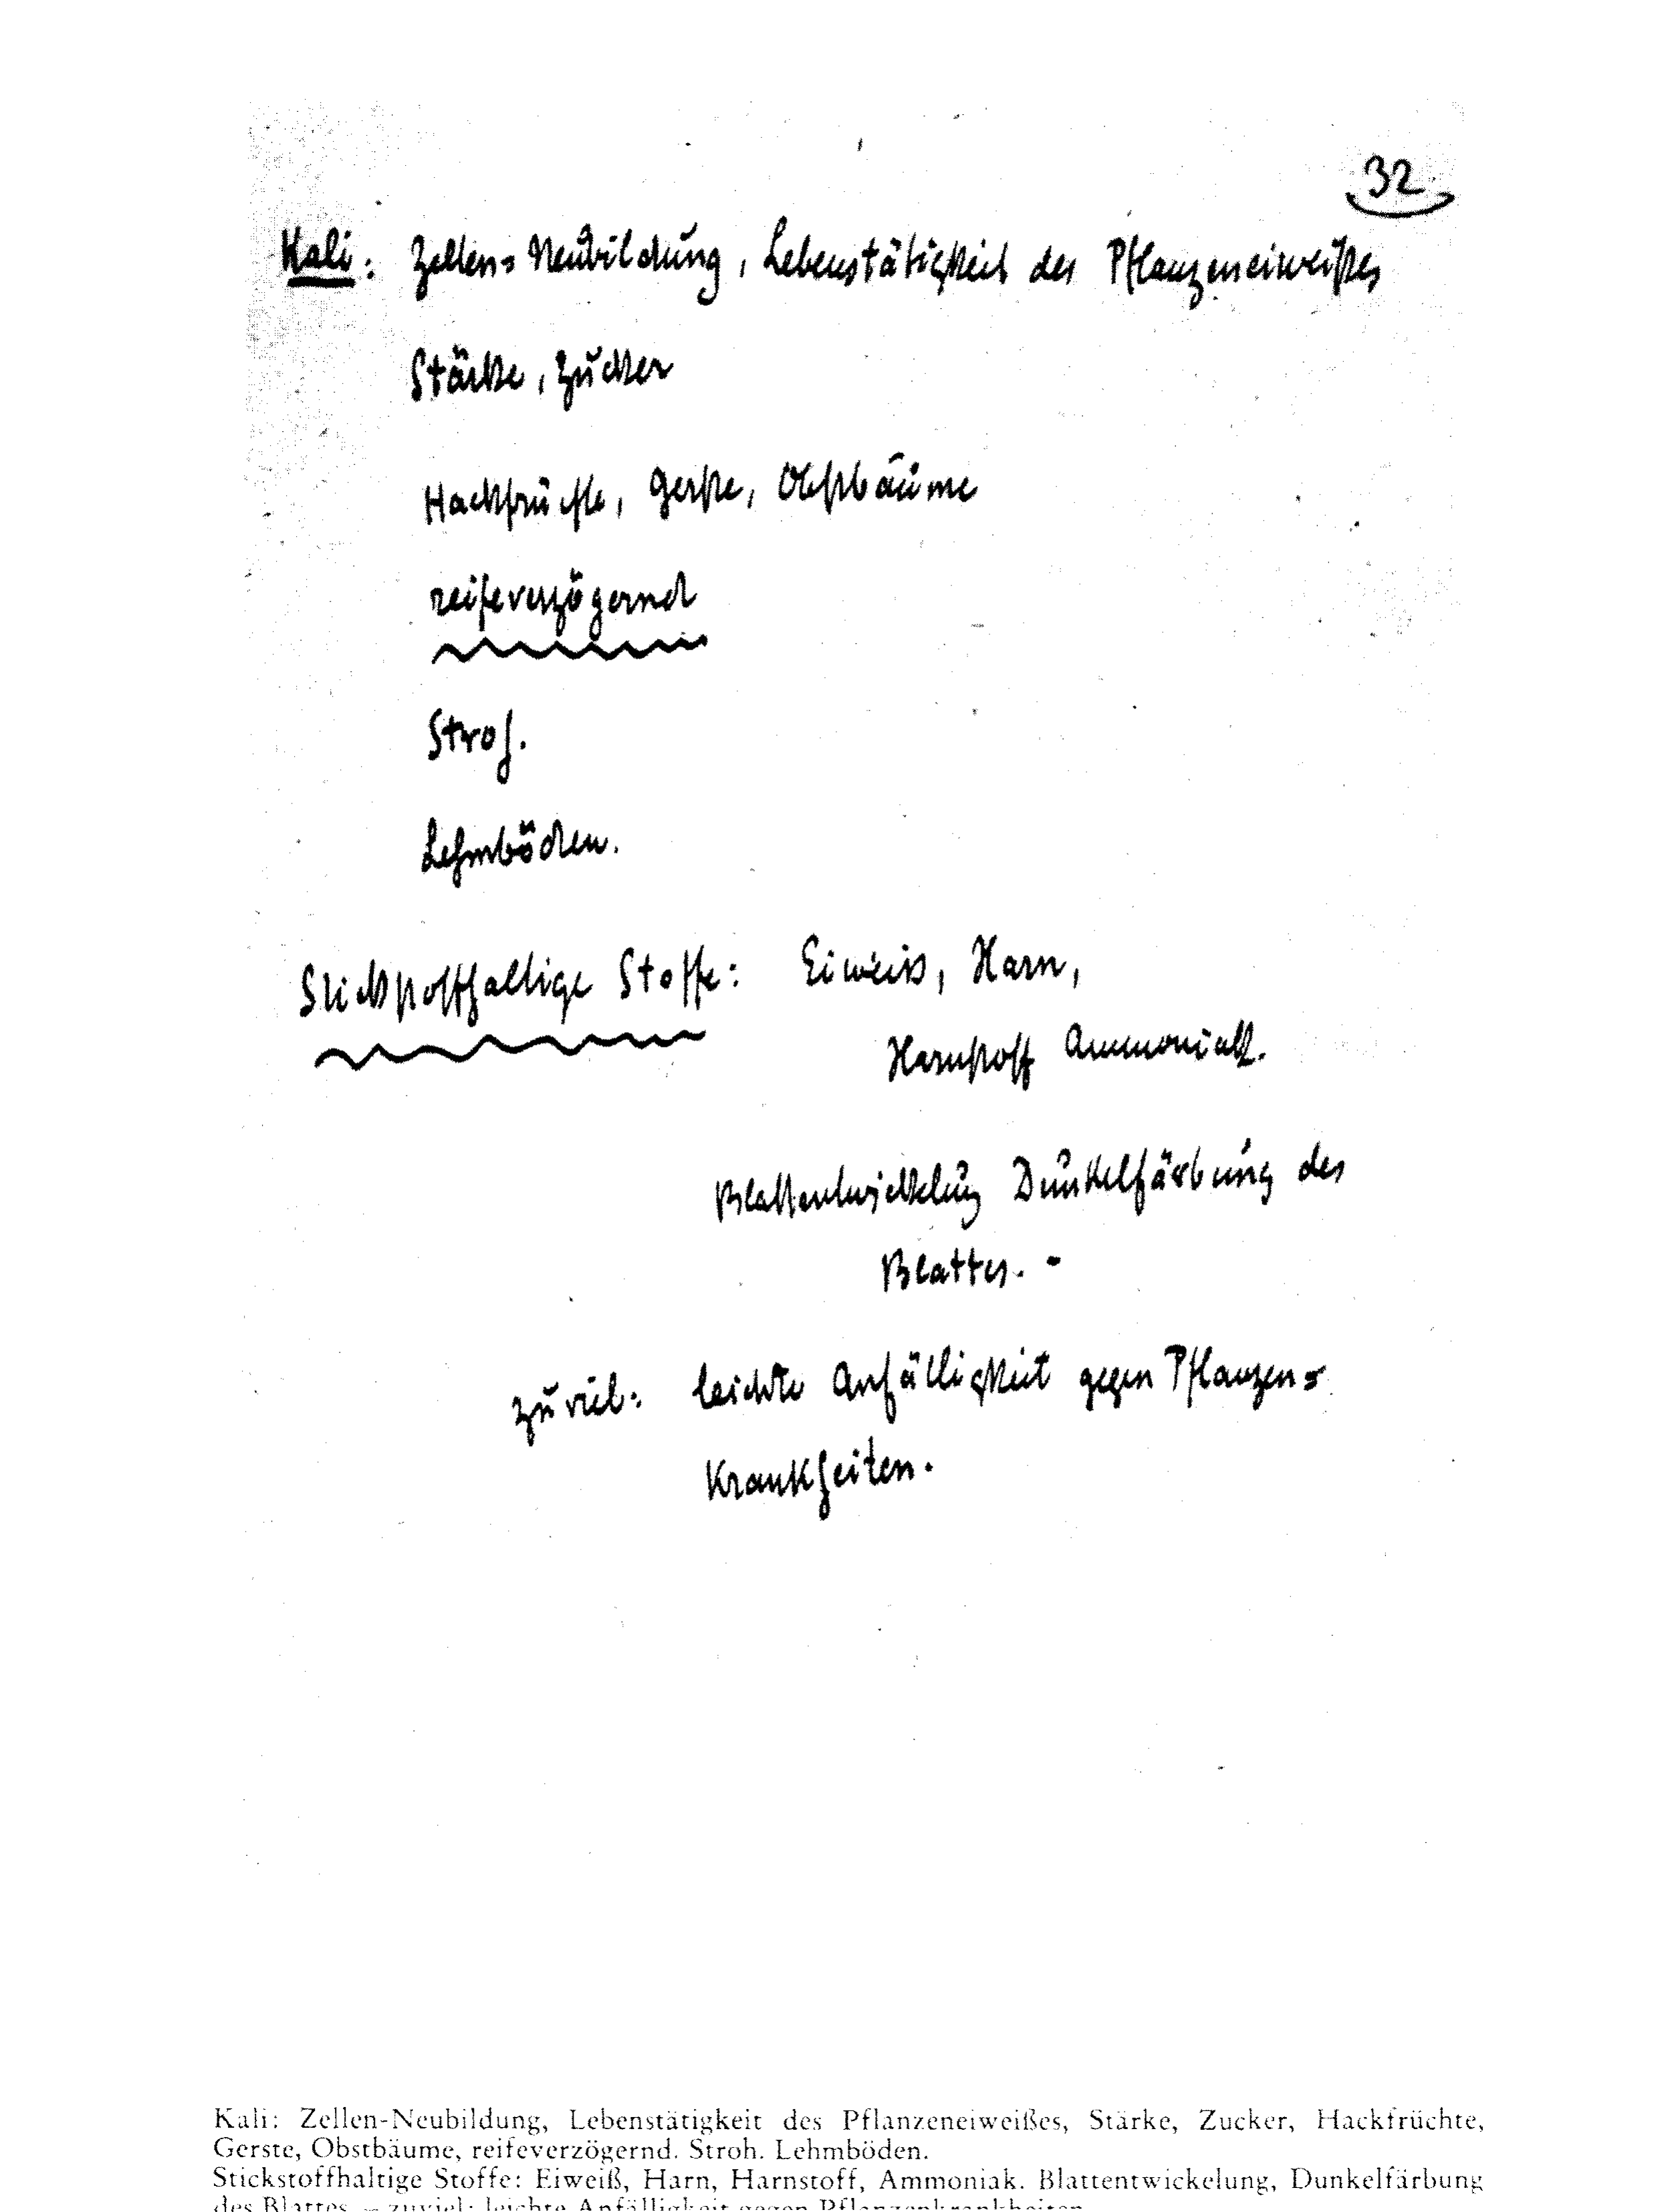 32
Kali: Zellen=Neubildung, Lebenstätigkeit des Pflanzeneiweißes
Stärke, Zucker
Hackfrüchte, Gerste, Obstbäume
reifeverzögernd
Stroh.
Lehmböden.
Stickstoffhaltige Stoffe: Eiweiss, Harn,
Harnstoff Ammoniak.
Blattentwickelung Dunkelfärbung des
Blattes. -
zuviel: leichte Anfälligkeit gegen Pflanzen=
Krankheiten.
Kali: Zellen-Neubildung, Lebenstätigkeit des Pflanzeneiweißes, Stärke, Zucker, Hackfrüchte,
Gerste, Obstbäume, reifeverzögernd. Stroh. Lehmböden.
Stickstoffhaltige Stoffe: Eiweiß, Harn, Harnstoff, Ammoniak. Blattentwickelung, Dunkelfärbung
des Blattes. – zuviel: leichte Anfälligkeit gegen Pflanzenkrankheiten.